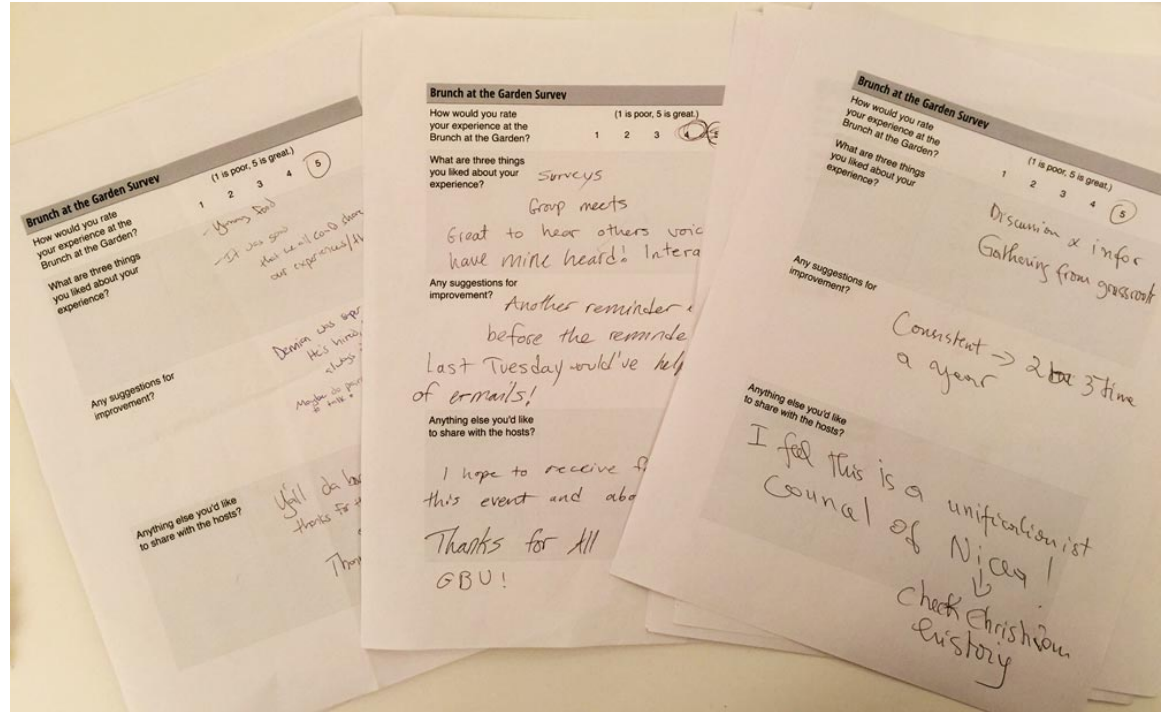 Brunch at the Garden Survey
How would you rate
your experience at the
Brunch at the Garden?
(1 is poor, 5 is great.)
1 2 3 4 5
What are three things
you liked about your
experience?
- Yummy food
- It was
that we all could share
our experiences/
Any suggestions for
improvement?
was
He's
always
Maybe do
to talk!
Anything else you'd like
to share with the hosts?
Y'all da
thanks for
Brunch at the Garden Survey
How would you rate
your experience at the
Brunch at the Garden?
(1 is poor, 5 is great.)
1 2 3 4 5
What are three things
you liked about your
experience?
Surveys
Group meets
Great to hear others voic
have mine heard! Intera
Any suggestions for
improvement?
Another reminder
before the reminde
Last Tuesday would've help
of ermails!
Anything else you'd like
to share with the hosts?
I hope to receive f
this event and abo
Thanks for All
GBU!
Brunch at the Garden Survey
How would you rate
your experience at the
Brunch at the Garden?
(1 is poor, 5 is great.)
1 2 3 4 5
What are three things
you liked about your
experience?
Discussion & infor
Gathering from grassroot
Any suggestions for
improvement?
Consistent → 2 3 time
a year
Anything else you'd like
to share with the hosts?
I feel this is a unificationist
Council of Nicea!
↓
Check Christian
history